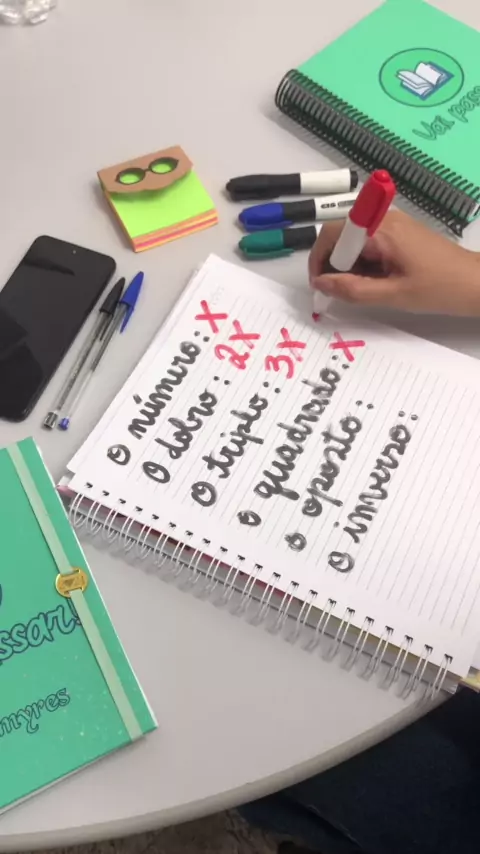 O número: x
O dobro: 2x
O triplo: 3x
O quadrado: x
O oposto:
O inverso:
Vai pass
ssar
myres
CiS